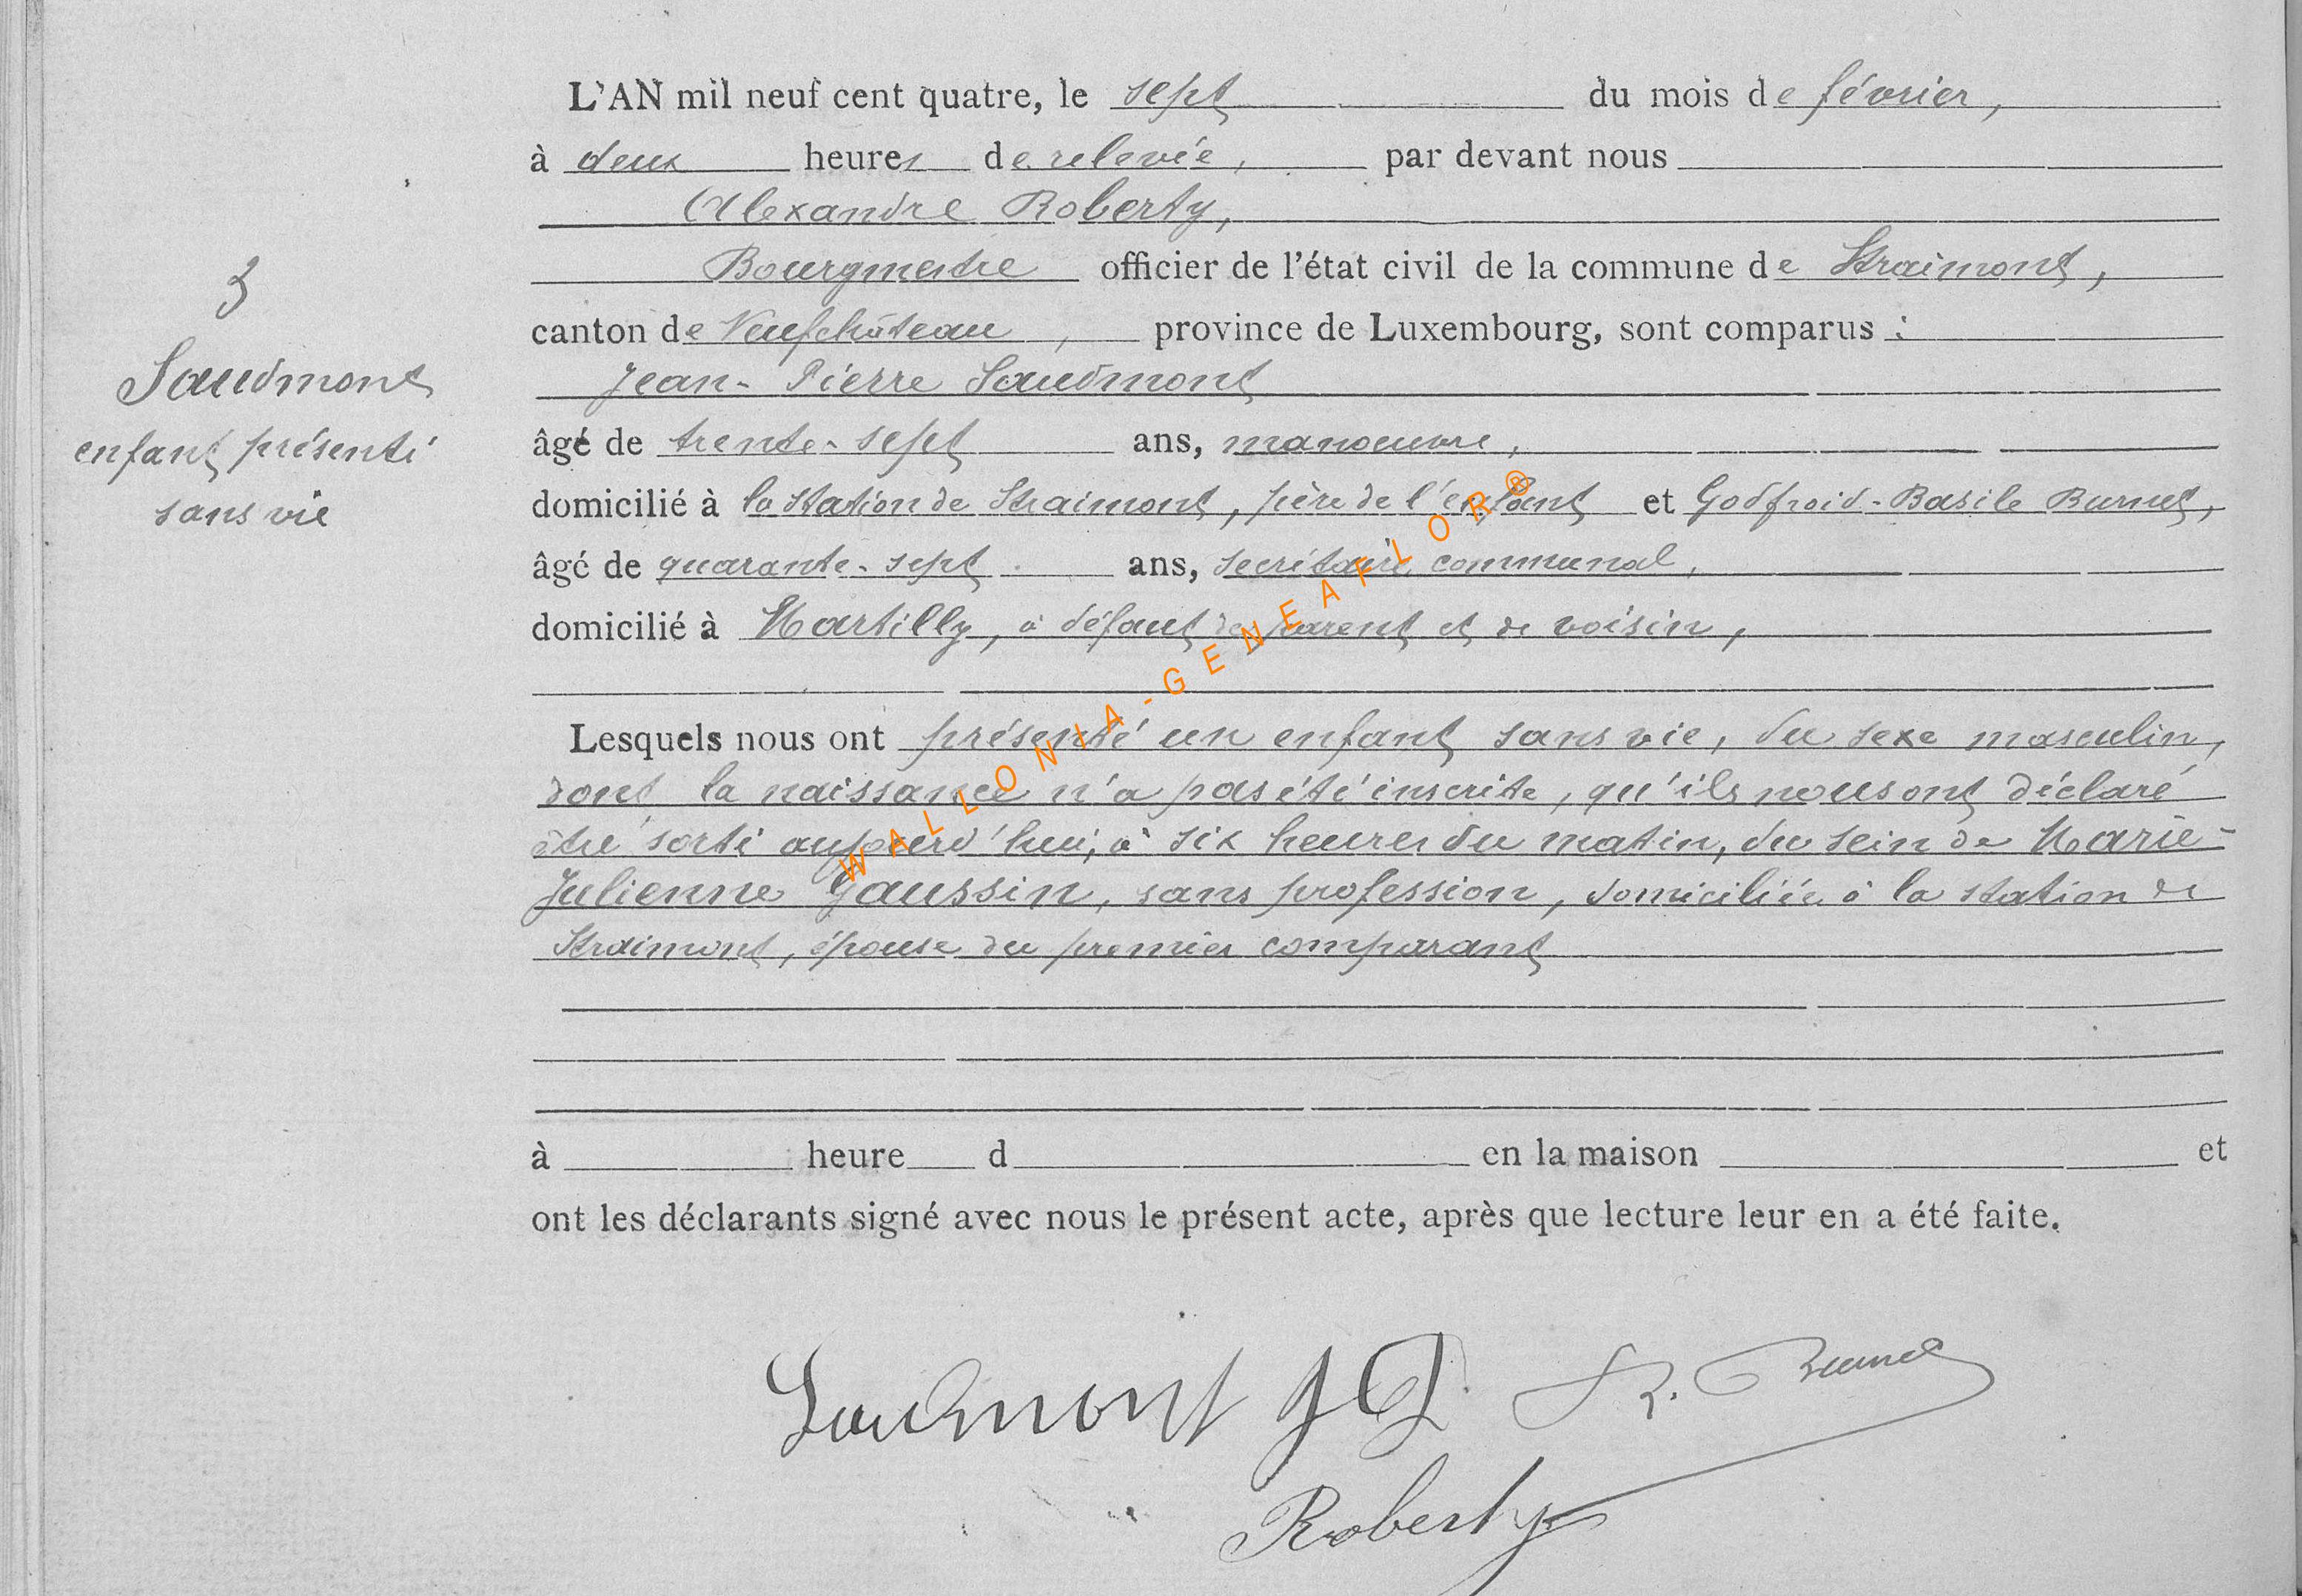 L'AN mil neuf cent quatre, le sept du mois de février,
à deux heures de relevée, par devant nous
Alexandre Roberty,
Bourgmestre officier de l'état civil de la commune de Straimont,
canton de Neufchâteau, province de Luxembourg, sont comparus :
Jean-Pierre Saudmont
âgé de trente-sept ans, manoeuvre,
domicilié à la station de Straimont, père de l'enfant et Godfroid-Basile Burnet,
âgé de quarante-sept ans, secrétaire communal,
domicilié à Martilly, à défaut de parent et de voisin,
Lesquels nous ont présenté un enfant sans vie, du sexe masculin,
dont la naissance n'a pas été inscrite, qu'ils nous ont déclaré
être sorti aujourd'hui, à six heures du matin, du sein de Marie-
Julienne Gaussin, sans profession, domiciliée à la station de
Straimont, épouse du premier comparant
à heure d en la maison et
ont les déclarants signé avec nous le présent acte, après que lecture leur en a été faite.
3
Saudmont
enfant présenté
sans vie
Saudmont J P
Roberty
WALLONIA-GENEAFLOR®